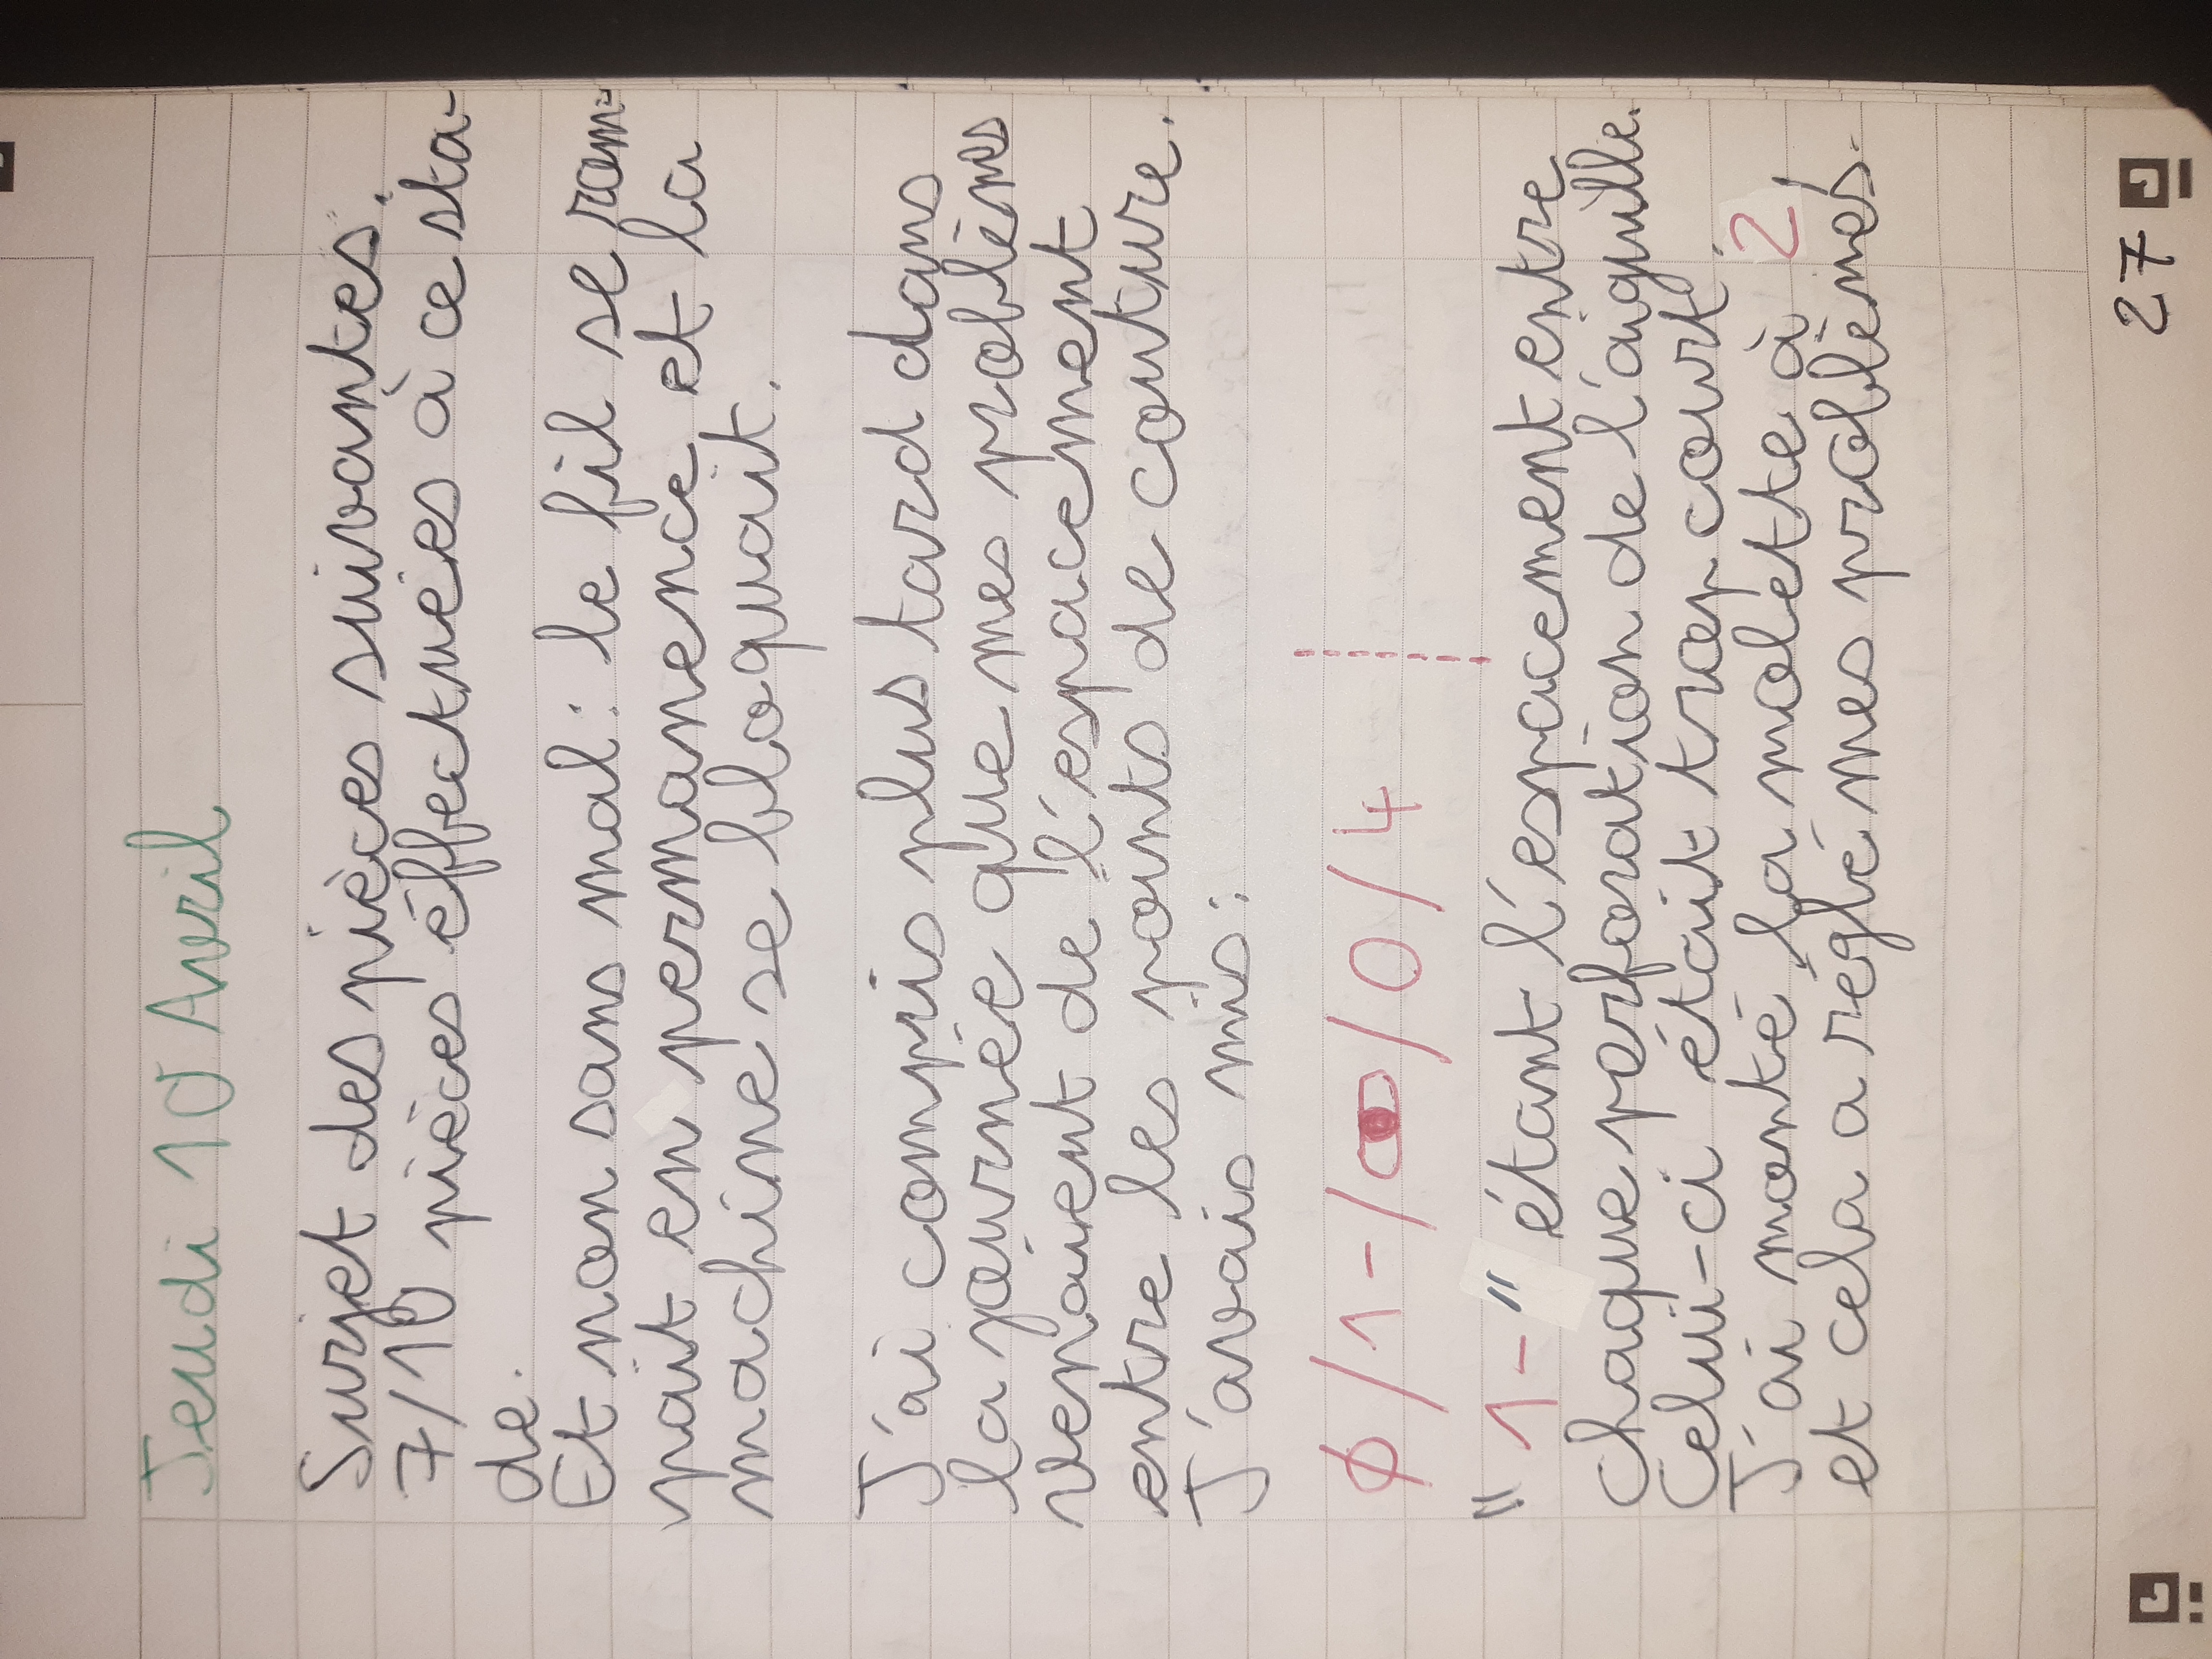 Jeudi 10 Avril
Surjet des pièces suivantes.
7/10 pièces éffectuées à ce sta-
de.
Et non sans mal : le fil se rom-
pait en permanence et la
machine se bloquait.
J'ai compris plus tard dans
la journée que mes problèmes
venaient de l'éspacement
entre les points de couture.
J'avais mis :
ϕ/1-/0/0/4
"1-" étant l'éspacement entre
chaque perforation de l'aiguille.
Celui-ci était trop court.
J'ai monté la molette à 2
et cela a réglé mes problèmes.
27